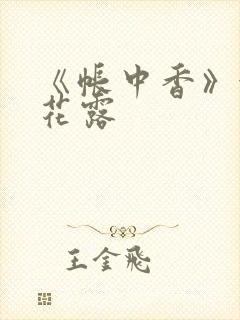 《帐中香》
花露
王金飛